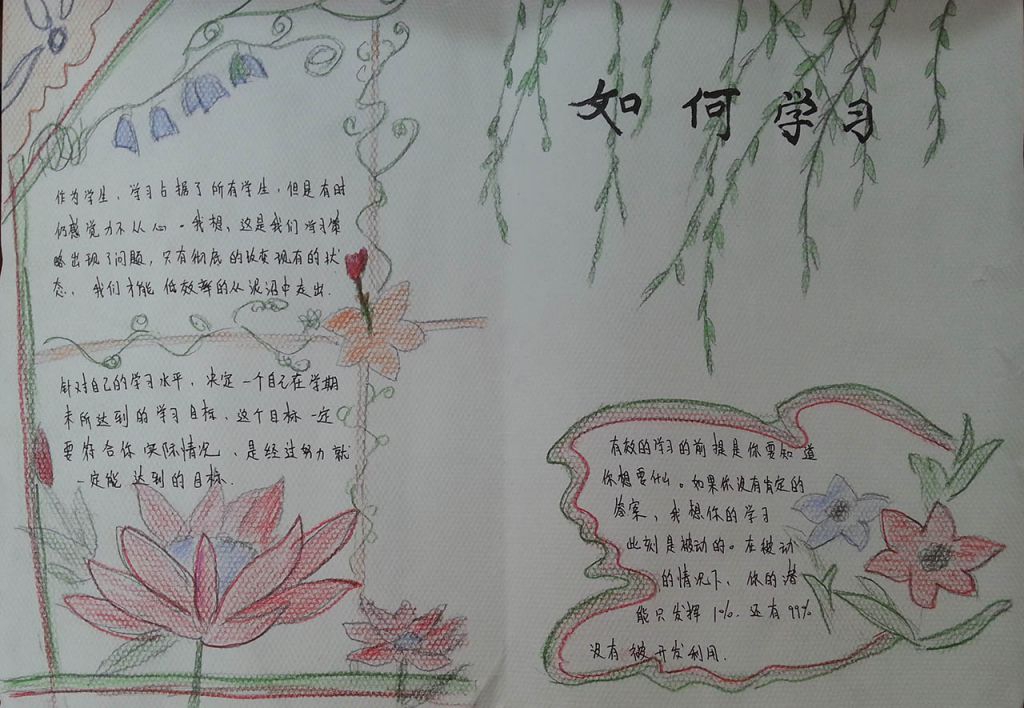 如何学习
作为学生，学习占据了所有学生，但是有时
仍感觉力不从心。我想，这是我们学习策
略出现了问题，只有彻底的改变现有的状
态，我们才能低效率的从泥沼中走出.
针对自己的学习水平，决定一个自己在学期
末所达到的学习目标，这个目标一定
要符合你实际情况、是经过努力就
一定能达到的目标.
有效的学习的前提是你要知道
你想要什么。如果你没有肯定的
答案、我想你的学习
此刻是被动的。在被动
的情况下、你的潜
能只发挥1%.还有99%
没有被开发利用.